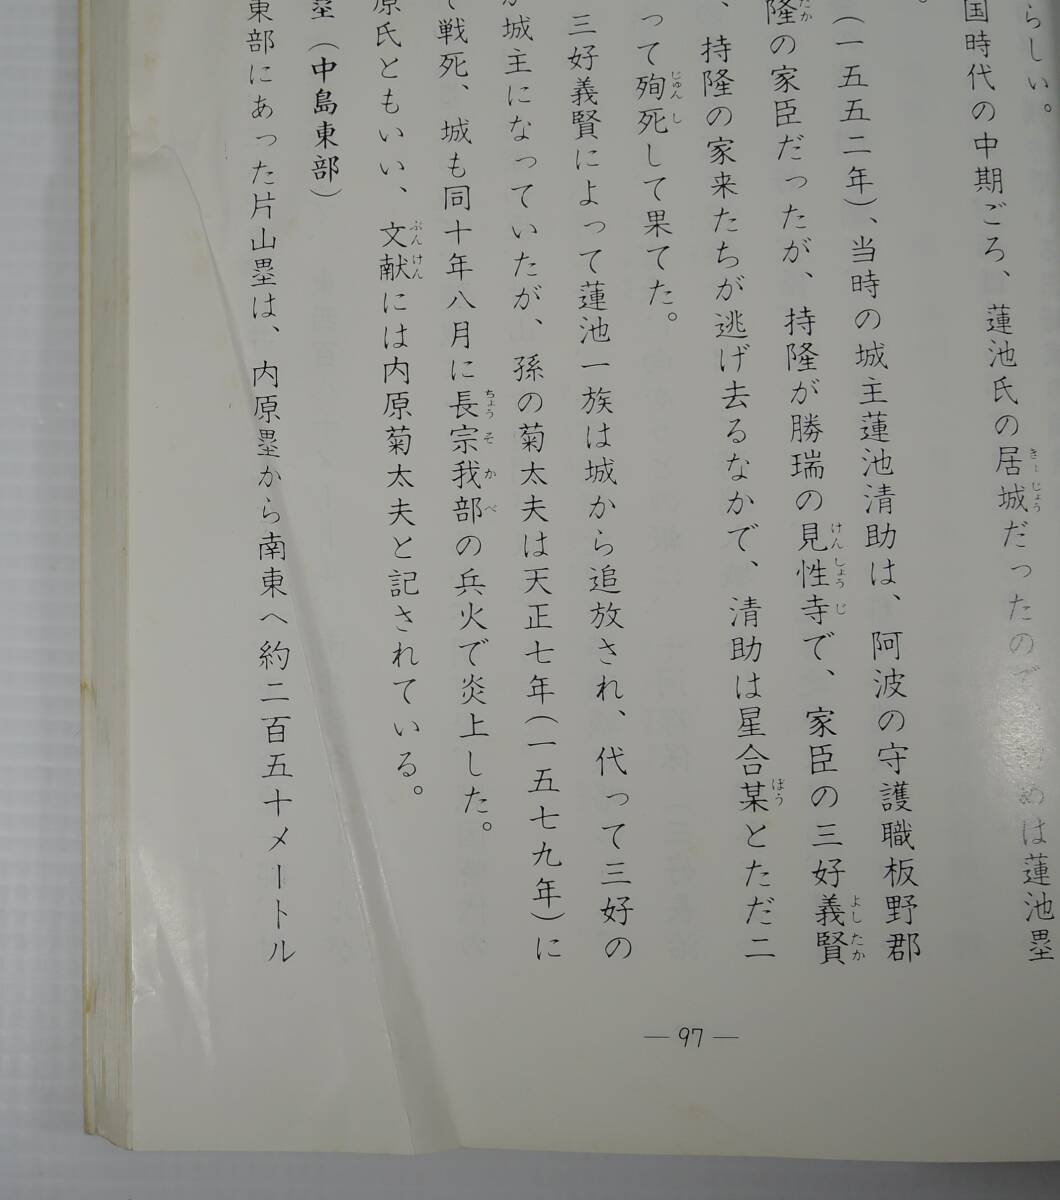 らしい。
国時代の中期ごろ、蓮池氏の居城だったので、
めは蓮池塁
。
(一五五二年)、当時の城主蓮池清助は、阿波の守護職板野郡
隆の家臣だったが、持隆が勝瑞の見性寺で、家臣の三好義賢
、持隆の家来たちが逃げ去るなかで、清助は星合某とただ二
って殉死して果てた。
三好義賢によって蓮池一族は城から追放され、代って三好の
が城主になっていたが、孫の菊太夫は天正七年(一五七九年)に
て戦死、城も同十年八月に長宗我部の兵火で炎上した。
原氏ともいい、文献には内原菊太夫と記されている。
塁(中島東部)
東部にあった片山塁は、内原塁から南東へ約二百五十メートル
— 97 —